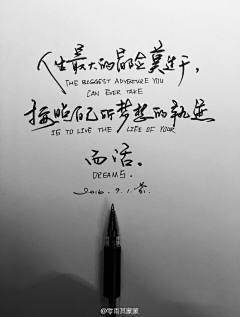 人生最大的冒险莫过于，
THE BIGGEST ADVENTURE YOU
CAN EVER TAKE
按照自己所梦想的轨迹
IS TO LIVE THE LIFE OF YOUR
而活。
DREAMS.
2016.9.1.
@零雨其蒙蒙